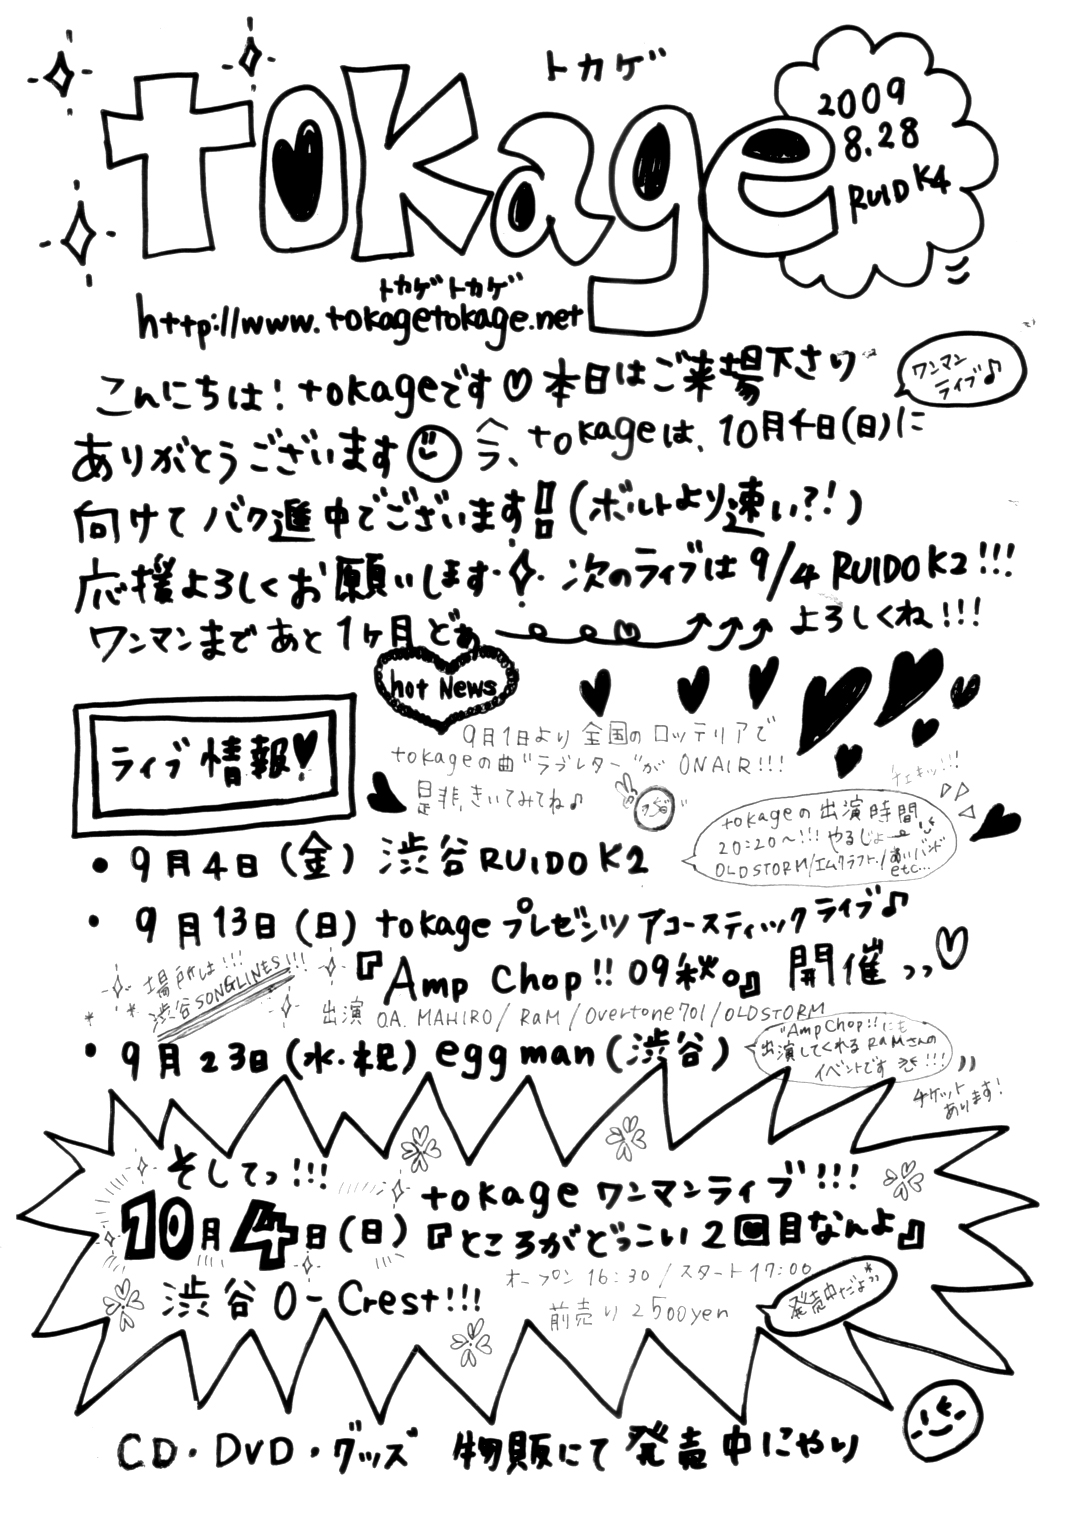 トカゲ
tokage
2009
8.28
RUIDO K4
トカゲトカゲ
http://www.tokagetokage.net
こんにちは！tokageです♡本日はご来場下さり
ワンマン
ライブ♪
ありがとうございます 今、tokageは、10月4日(日)に
向けてバク進中でございます!!(ボルトより速い?!)
応援よろしくお願いします 次のライブは9/4 RUIDO K2!!!
ワンマンまであと1ヶ月どぁ よろしくね!!!
hot News
9月1日より全国のロッテリアで
tokageの曲"ラブレター"が ONAIR!!!
是非、きいてみてね♪
ライブ情報!
チェキッ!!!
tokageの出演時間
20:20〜!!! やるじょ
OLDSTORM/エムクラフト/あいバンド
etc...
・9月4日(金) 渋谷RUIDO K2
・9月13日(日) tokageプレゼンツ アコースティックライブ♪
『Amp Chop!! 09秋。』開催♡
場所は!!!
渋谷SONGLINES!!!
出演 O.A. MAHIRO/RaM/Overtone701/OLDSTORM
・9月23日(水・祝) egg man(渋谷)
"AmpChop!!"にも
出演してくれるRaMさんの
イベントです!!!
チケット
あります!
そしてっ!!!
tokage ワンマンライブ!!!
10月4日(日)『ところがどっこい2回目なんよ』
オープン16:30/スタート17:00
渋谷O-Crest!!!
前売り2500yen
発売中だよ
CD・DVD・グッズ 物販にて発売中にゃり